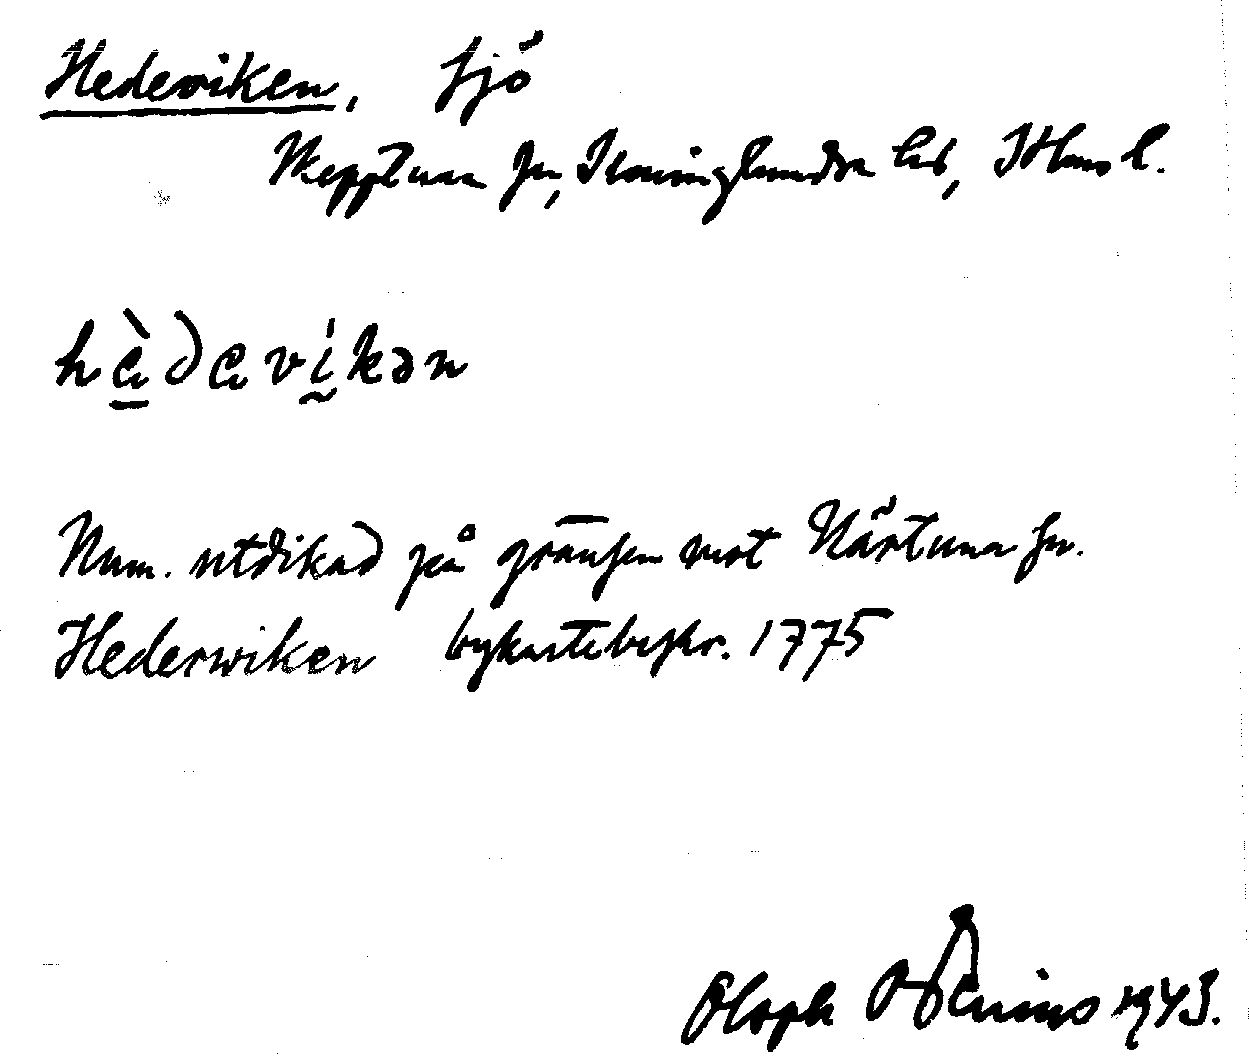 Hederviken, sjö
Skepptuna sn, Seminghundra hd, Sthms l.
hèdavíkən
Num. utdikad på gränsen mot Närtuna sn.
Hederwiken bykartebeskr. 1775
Oloph Odenius 1943.